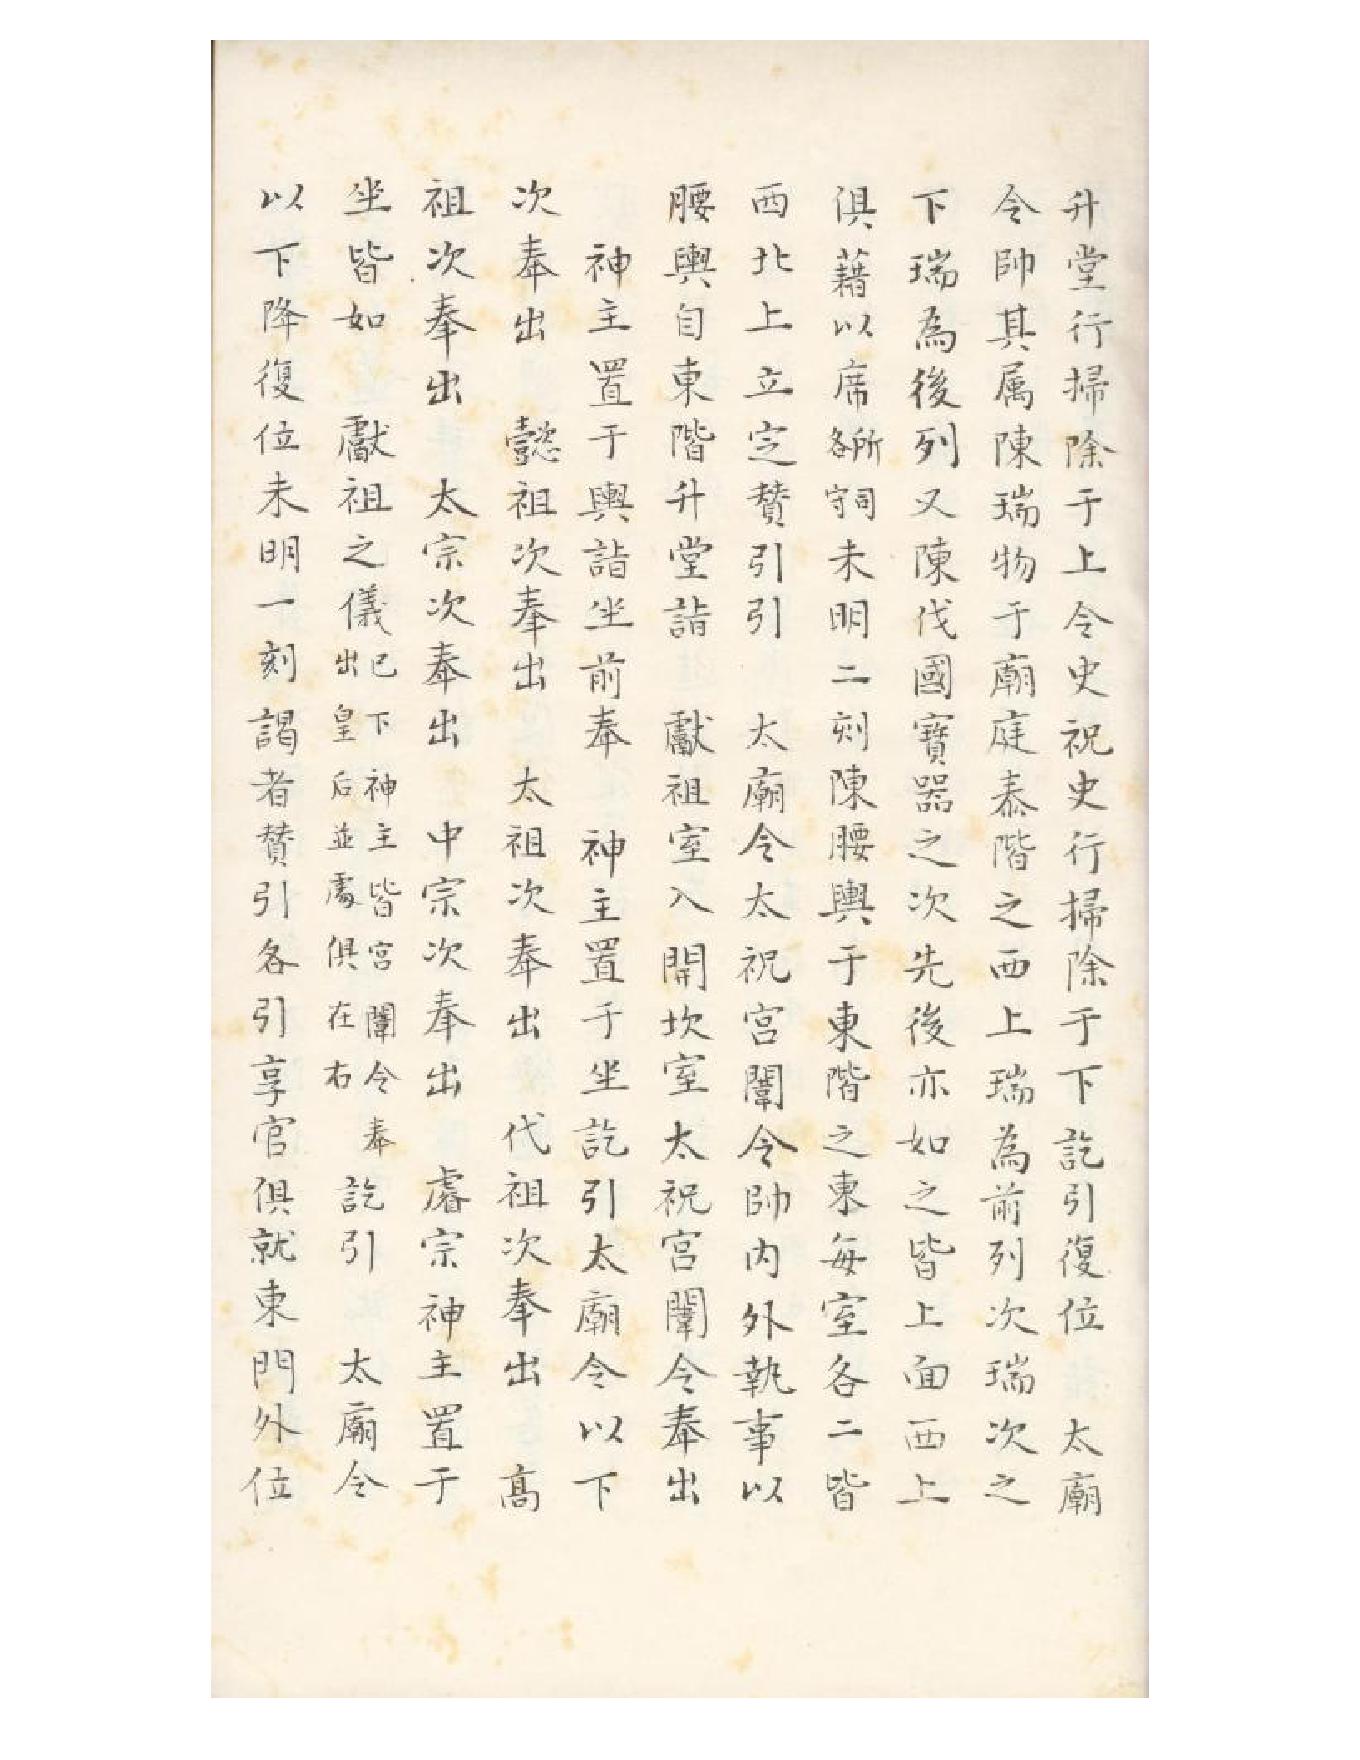 升堂行掃除于上令史祝史行掃除于下訖引復位　太廟
令帥其属陳瑞物于廟庭泰階之西上瑞為前列次瑞次之
下瑞為後列又陳伐國寶器之次先後亦如之皆上面西上
俱藉以席各所守司未明二刻陳腰輿于東階之東每室各二皆
西北上立定賛引引　太廟令太祝宮闈令帥内外執事以
腰輿自東階升堂詣　獻祖室入開坎室太祝宮闈令奉出
　神主置于輿詣坐前奉　神主置于坐訖引太廟令以下
次奉出　懿祖次奉出　太祖次奉出　代祖次奉出　髙
祖次奉出　太宗次奉出　中宗次奉出　睿宗神主置于
坐皆如　獻祖之儀已下神主皆宮闈令奉出皇后並處俱在右訖引　太廟令
以下降復位未明一刻謁者賛引各引享官俱就東門外位